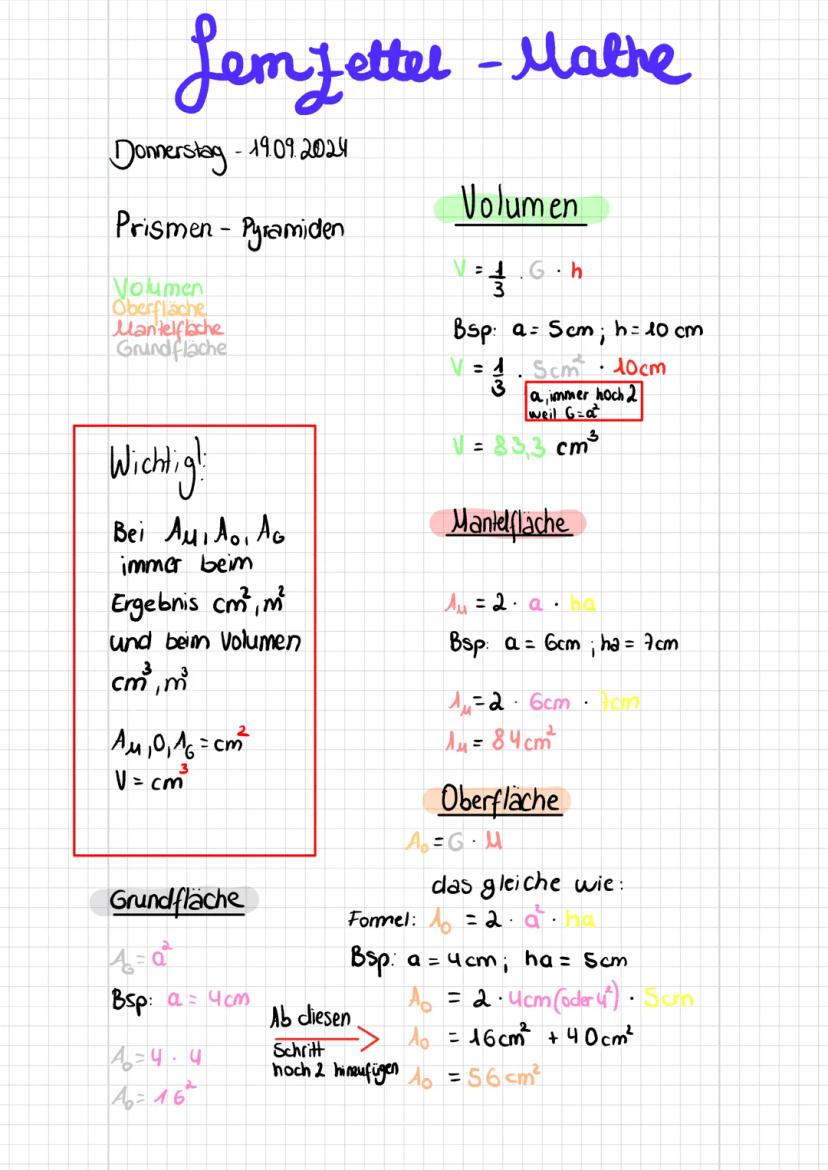 Lernzettel - Mathe
Donnerstag - 19.09.2024
Prismen - Pyramiden
Volumen
Oberfläche
Mantelfläche
Grundfläche
Wichtig!:
Bei AM, AO, AG
immer beim
Ergebnis cm², m²
und beim Volumen
cm³, m³
AM, O, AG = cm²
V = cm³
Grundfläche
AG = a²
Bsp: a = 4cm
AO = 4 · 4
AO = 16²
Volumen
V = 1/3 · G · h
Bsp: a = 5cm ; h = 10 cm
V = 1/3 · 5cm² · 10cm
a, immer hoch 2
weil G = a²
V = 83,3 cm³
Mantelfläche
AM = 2 · a · ha
Bsp: a = 6cm ; ha = 7cm
AM = 2 · 6cm · 7cm
AM = 84cm²
Oberfläche
AO = G · M
das gleiche wie:
Formel: AO = 2 · a² · ha
Bsp: a = 4cm ; ha = 5cm
AO = 2 · 4cm (oder 4²) · 5cm
Ab diesen
Schritt
hoch 2 hinzufügen
AO = 16cm² + 40cm²
AO = 56cm²